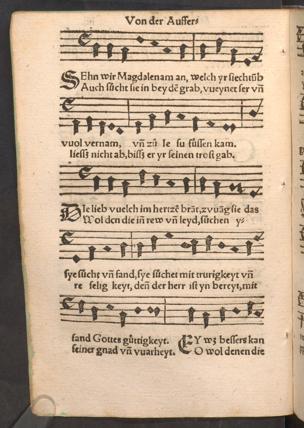 Von der Auffer⸗
SEhn wir Magdalenam an, welch yr siecht ũb
Auch sůcht sie in bey dē grab, vueynet ser vñ
vuol vernam, vñ zů Je su füssen kam.
liess nicht ab, biss er yr seinen trost gab.
DIe lieb vuelch im hertzē brāt, zvuāg sie das
Wol den die in rew vñ leyd, sůchen y⸗
sye sůcht vñ fand, sye sůchet mit trurigkeyt vñ
re selig keyt, deñ der herr ist yn bereyt, mit
fand Gottes gůttigkeyt. EY wz bessers kan
seiner gnad vñ vuarheyt. O wol denen die